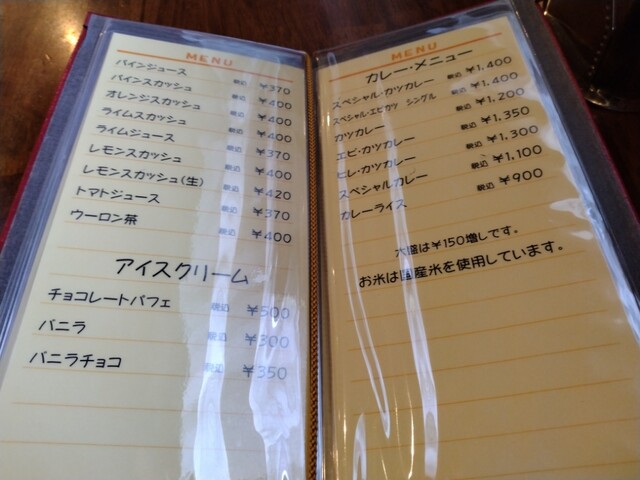 MENU
パインジュース 税込 ¥370
パインスカッシュ 税込 ¥400
オレンジスカッシュ 税込 ¥400
ライムスカッシュ 税込 ¥400
ライムジュース 税込 ¥370
レモンスカッシュ 税込 ¥400
レモンスカッシュ(生) 税込 ¥420
トマトジュース 税込 ¥370
ウーロン茶 税込 ¥400
アイスクリーム
チョコレートパフェ 税込 ¥500
バニラ 税込 ¥300
バニラチョコ 税込 ¥350
MENU
カレー・メニュー
スペシャル・カツカレー 税込 ¥1,400
スペシャルエビカツ シングル 税込 ¥1,400
カツカレー 税込 ¥1,200
エビ・カツカレー 税込 ¥1,350
ヒレ・カツカレー 税込 ¥1,300
スペシャルカレー 税込 ¥1,100
カレーライス 税込 ¥900
大盛は¥150増しです。
お米は国産米を使用しています。